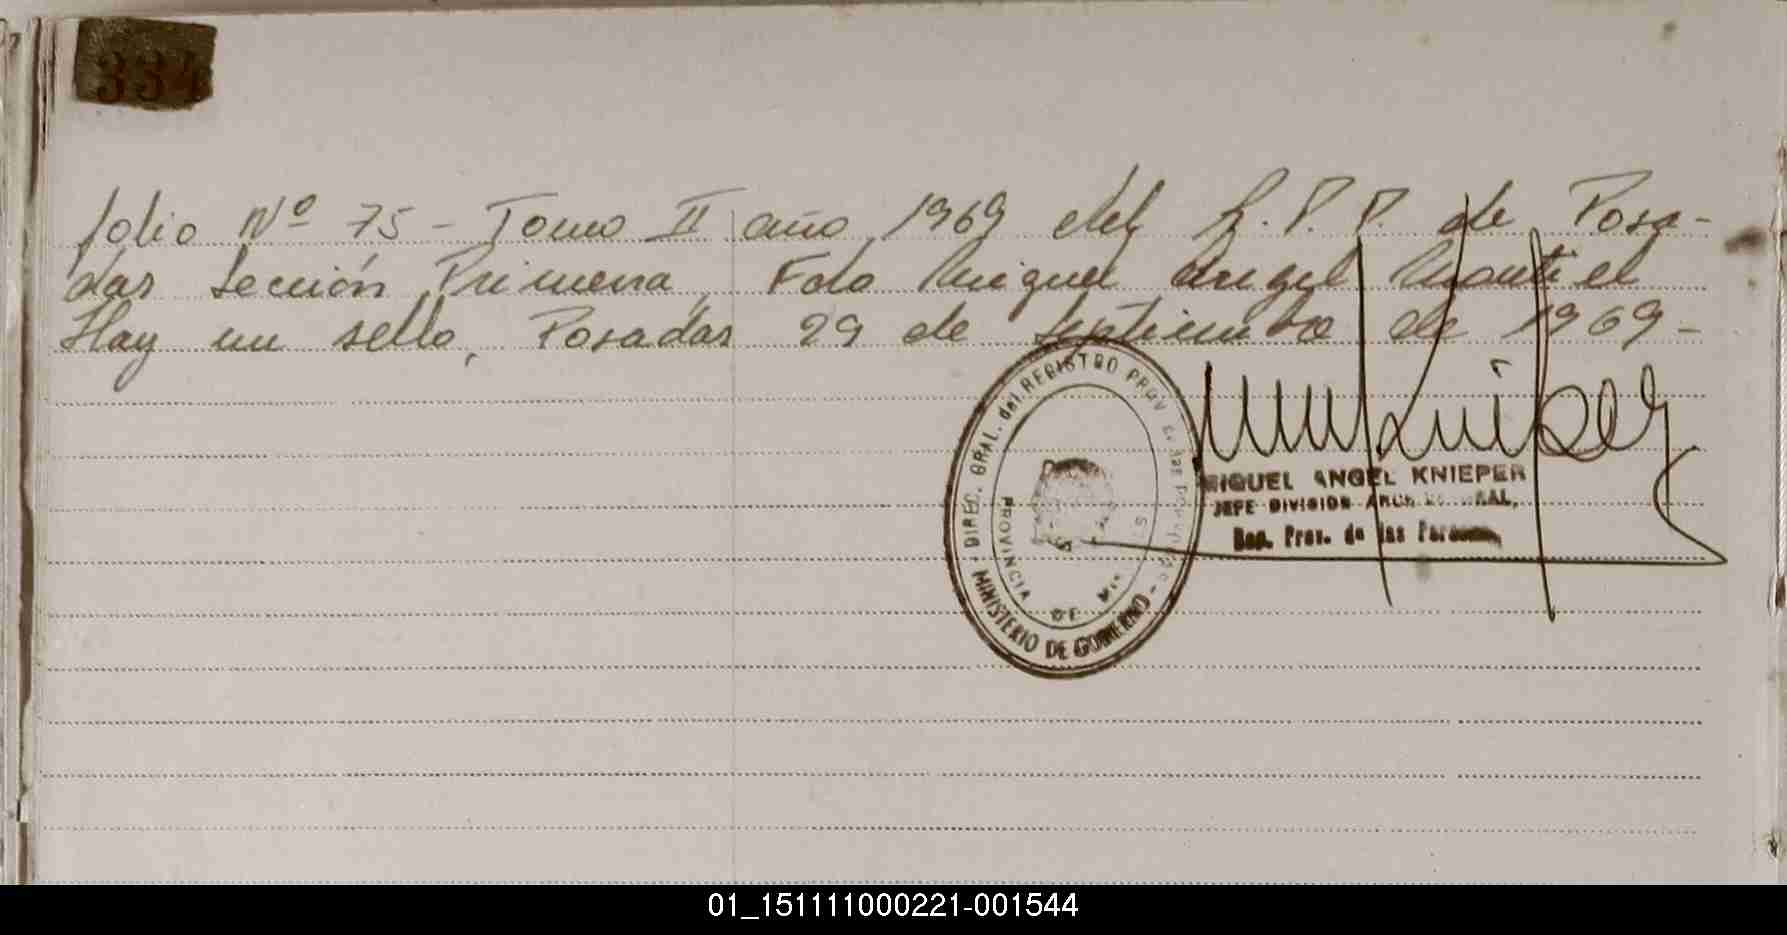 334
folio Nº 75 - Tomo II año 1969 del R.P.P. de Posa-
das Sección Primera, Fdo Miguel Angel Montiel
Hay un sello, Posadas 29 de Septiembre de 1969-
DIREC. GRAL. del REGISTRO PROV. de las
PROVINCIA DE
MINISTERIO DE GOBIERNO
MIGUEL ANGEL KNIEPER
JEFE DIVISION
Prov. de las
01_151111000221-001544